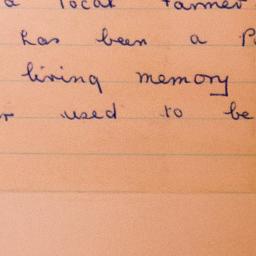 a local farmer
has been a
living memory
used to be